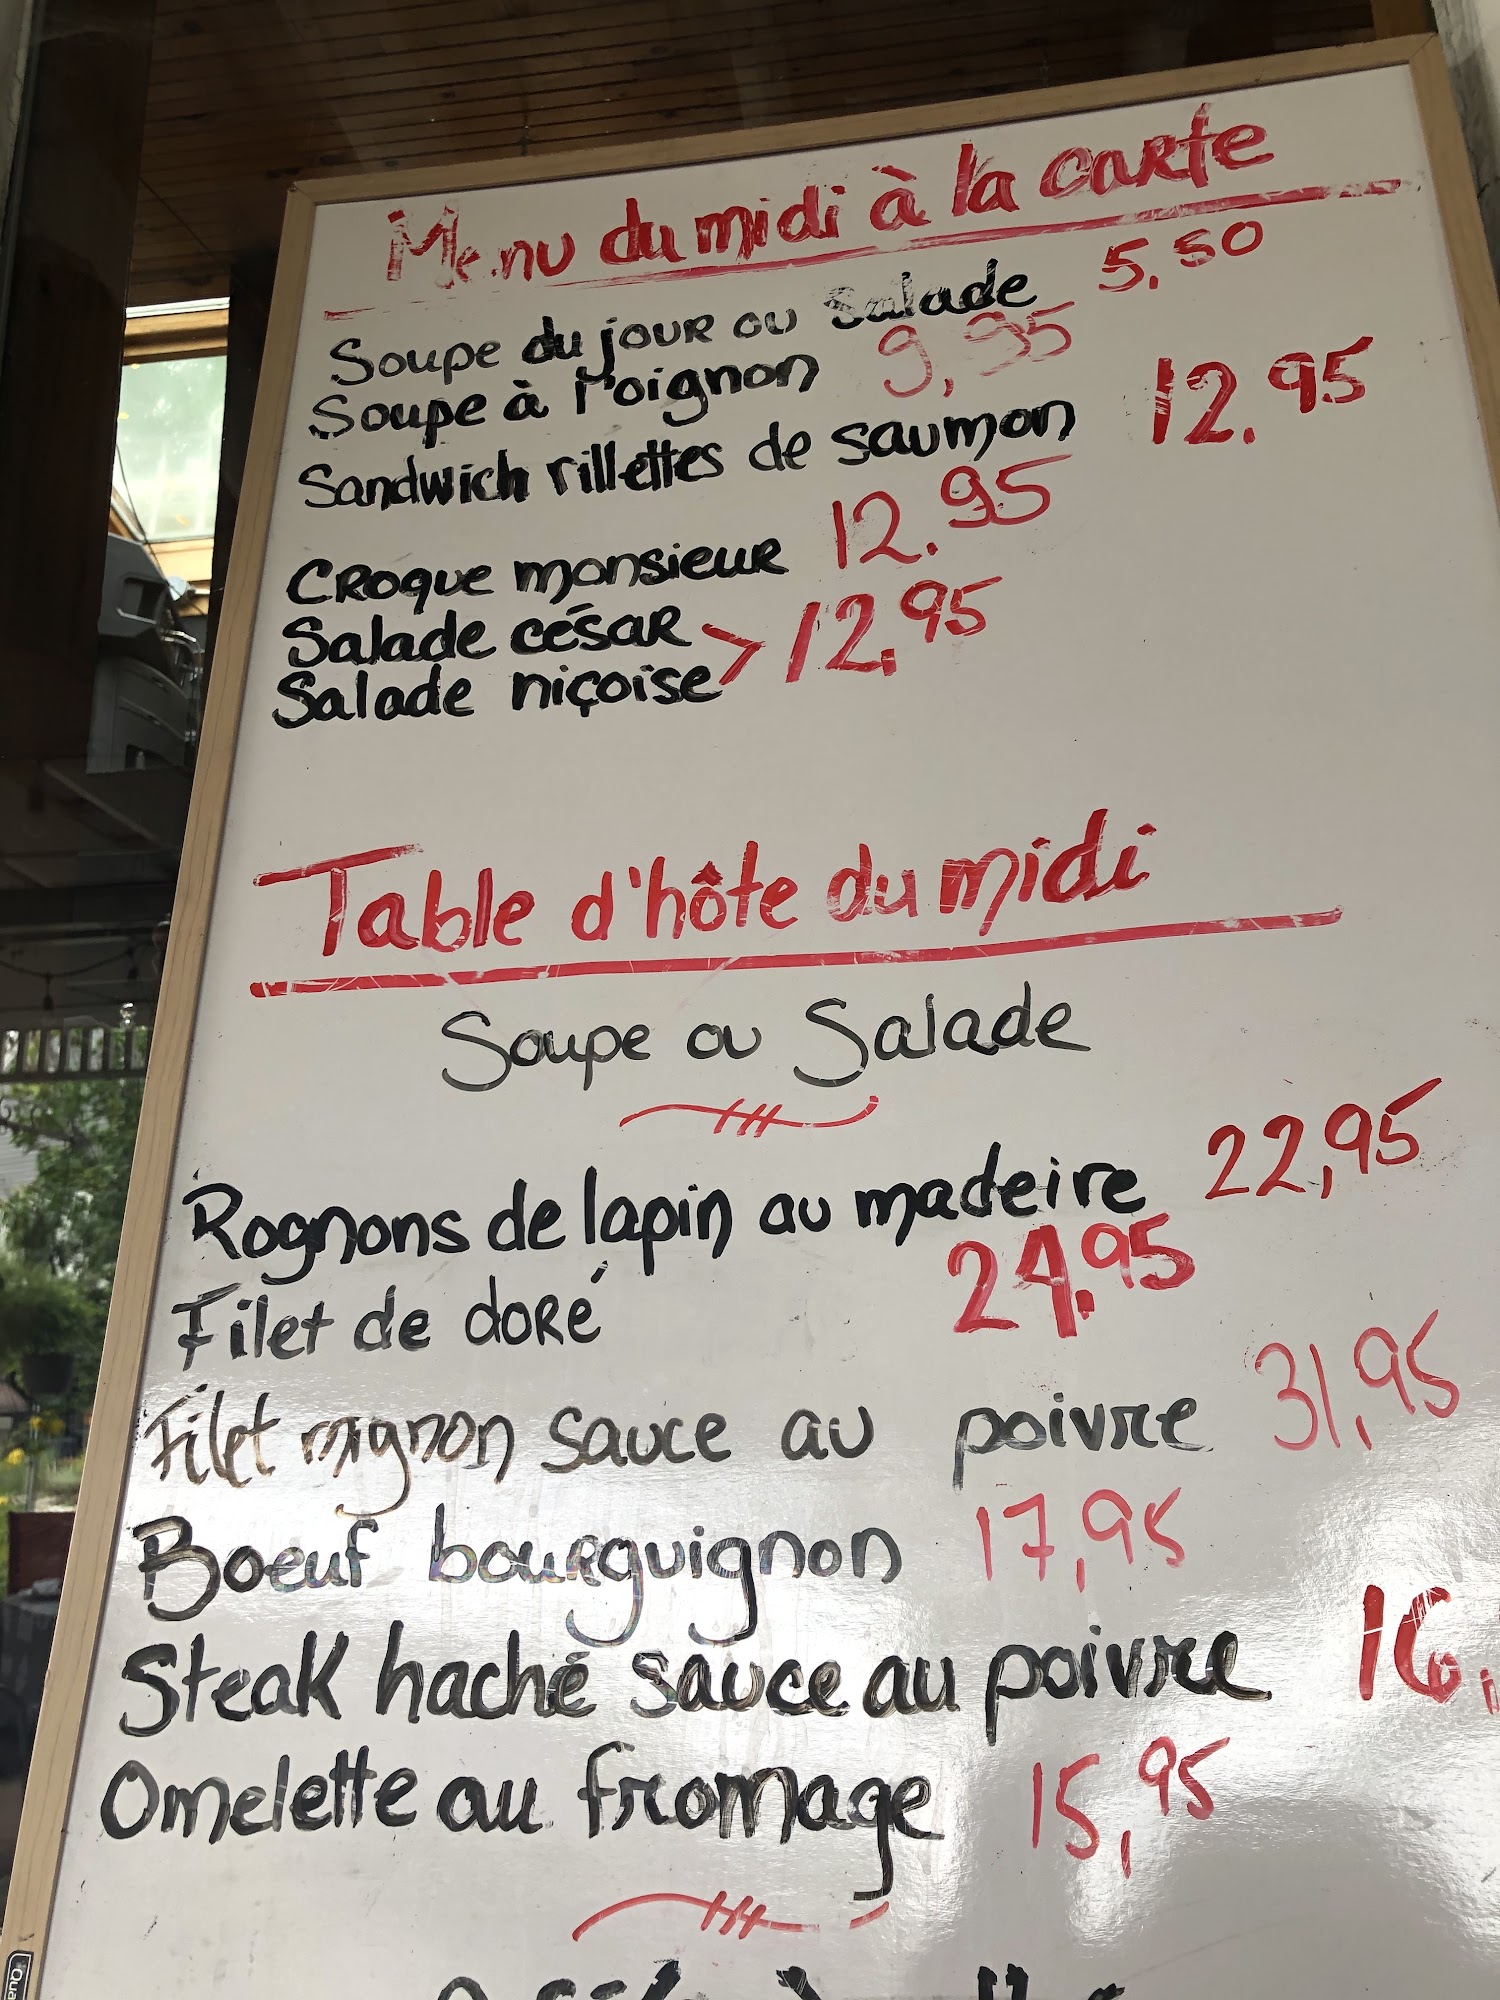 Menu du midi à la carte
Soupe du jour ou salade 5.50
Soupe à l'oignon 9,95
Sandwich rillettes de saumon 12.95
Croque monsieur 12.95
Salade césar
Salade niçoise > 12.95
Table d'hôte du midi
Soupe ou Salade
Rognons de lapin au madeire 22,95
Filet de doré 24.95
Filet mignon sauce au poivre 31,95
Boeuf bourguignon 17,95
Steak haché sauce au poivre 16.
Omelette au fromage 15,95